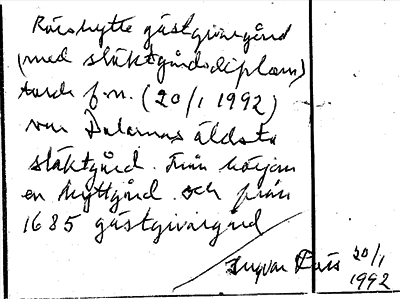 Råshytte gästgivaregård
(med släktgårdsdiplom)
torde f.n. (20/1 1992)
vara Dalarnas äldsta
släktgård. Från början
en hyttgård och från
1685 gästgivargård
Ingvar 20/1
1992